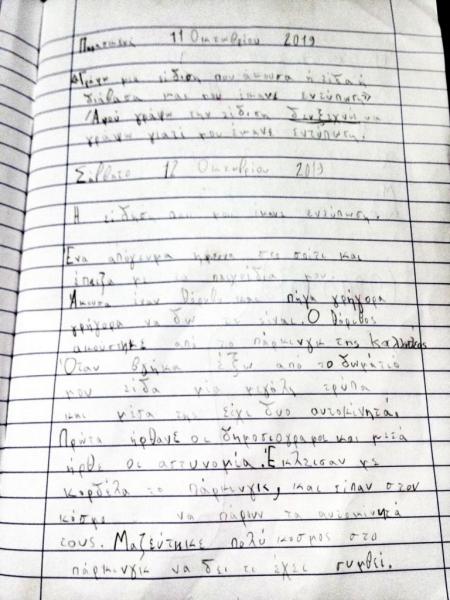 Παρασκευή 11 Οκτωβρίου 2019
«Γράψω μια είδιση που άκουσα ή είδα ή
διάβασα και μου έκανε εντύπωση»
Αφού γράψω την είδιση δεν ξεχνώ να
γράψω γιατί μου έκανε εντύπωση.
Σάββατο 12 Οκτωβρίου 2019
Η είδηση που μου έκανε εντύπωση.
Ένα απόγευμα ήμουνα στο σπίτι και
έπεζα με τα παιχνίδια μου.
Άκουσα έναν θόρυβο και πήγα γρήγορα
γρήγορα να δω τι είναι. Ο θόρυβος
ακούστηκε από το πάρκινγκ της
Όταν βγήκα έξω από το δωμάτιό
μου είδα μία μεγάλη τρύπα
και μέσα της είχε δυο αυτοκίνητα.
Πρώτα ήρθανε οι δημοσιογράφοι και μετά
ήρθε οι αστυνομία. Έκλεισαν με
κορδέλα το πάρκινγκ, και είπαν στον
κόσμο να πάρουν τα αυτοκίνητά
τους. Μαζεύτηκε πολύ κόσμος στο
πάρκινγκ να δει τι έχει συμβεί.